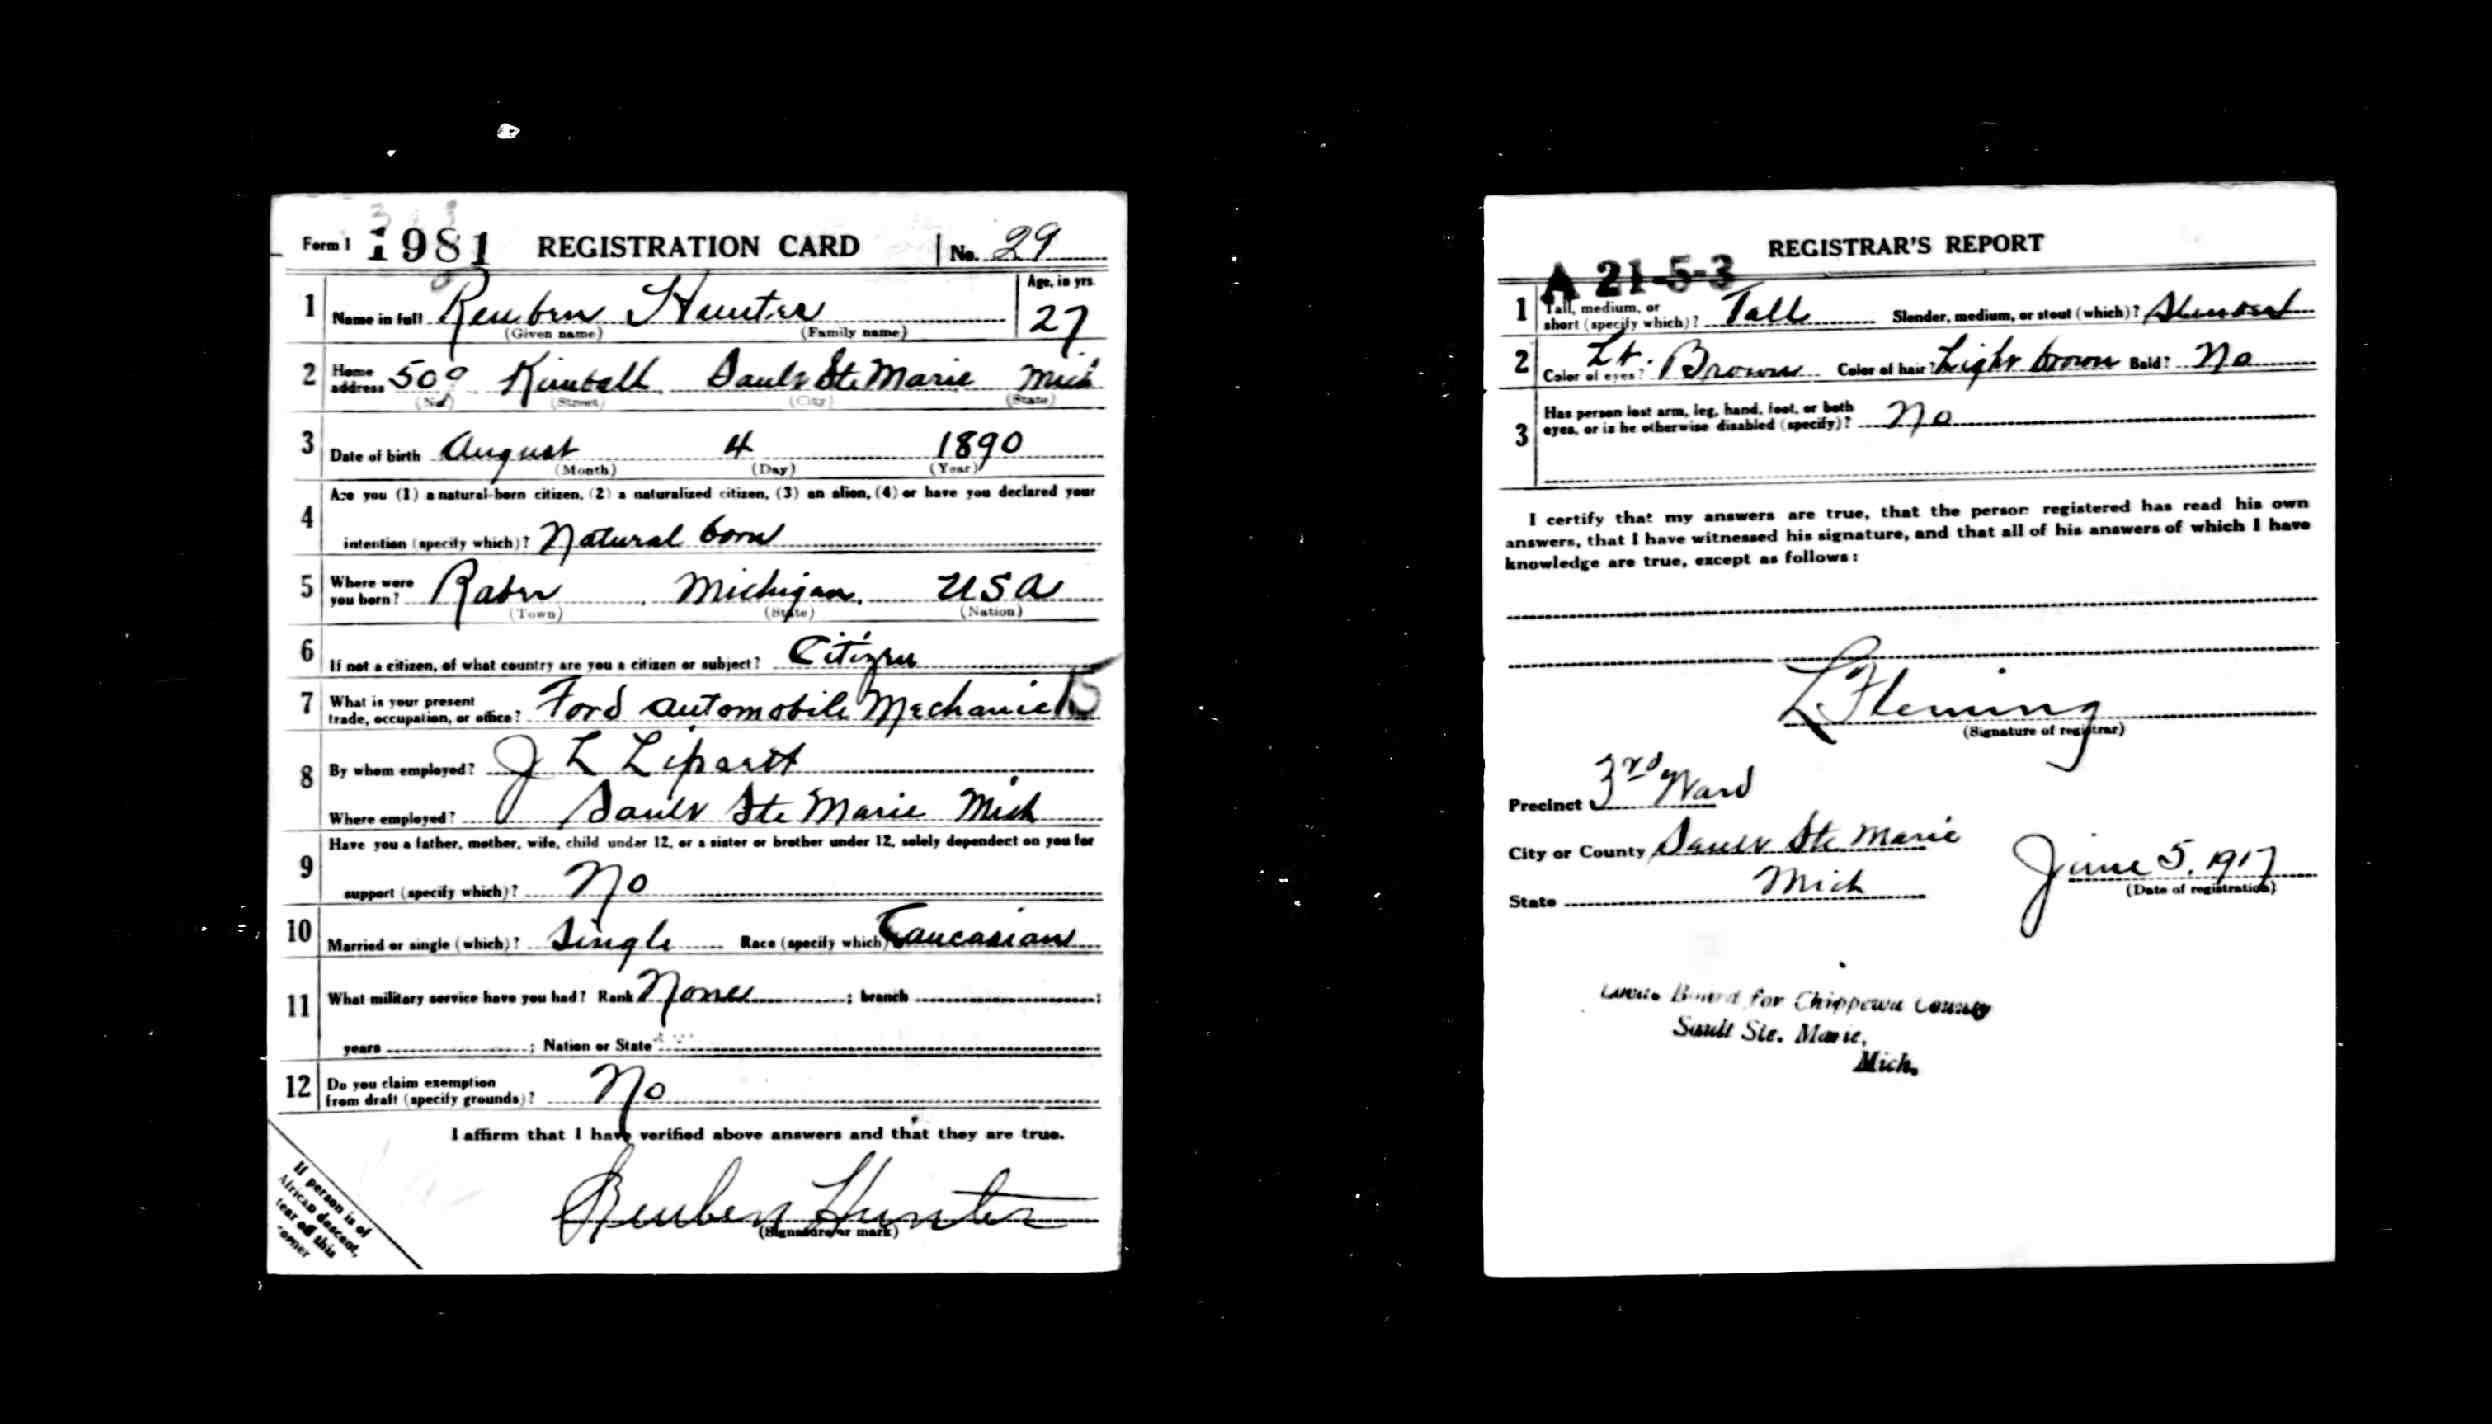 Form 1 1981 REGISTRATION CARD No. 29
1 Name in full Reuben Hunter Age, in yrs. 27
(Given name) (Family name)
2 Home address 509 Kimball Sault Ste Marie Mich
(No.) (Street) (City) (State)
3 Date of birth August 4 1890
(Month) (Day) (Year)
4 Are you (1) a natural-born citizen, (2) a naturalized citizen, (3) an alien, (4) or have you declared your
intention (specify which)? Natural born
5 Where were you born? Raber Michigan, USA
(Town) (State) (Nation)
6 If not a citizen, of what country are you a citizen or subject? Citizen
7 What is your present trade, occupation, or office? Ford automobile Mechanic 15
8 By whom employed? J L Lipsett
Where employed? Sault Ste Marie Mich
9 Have you a father, mother, wife, child under 12, or a sister or brother under 12, solely dependent on you for
support (specify which)? No
10 Married or single (which)? Single Race (specify which) Caucasian
11 What military service have you had? Rank None ; branch ;
years ; Nation or State
12 Do you claim exemption from draft (specify grounds)? No
I affirm that I have verified above answers and that they are true.
Reuben Hunter
(Signature or mark)
If person is of
African descent,
tear off this
corner
REGISTRAR'S REPORT
A 21-5-3
1 Tall, medium, or short (specify which)? Tall Slender, medium, or stout (which)?
2 Color of eyes? Lt. Brown Color of hair? Light brown Bald? No
3 Has person lost arm, leg, hand, foot, or both eyes, or is he otherwise disabled (specify)? No
I certify that my answers are true, that the person registered has read his own
answers, that I have witnessed his signature, and that all of his answers of which I have
knowledge are true, except as follows:
L Fleming
(Signature of registrar)
Precinct 3rd Ward
City or County Sault Ste Marie
State Mich
June 5, 1917
(Date of registration)
Board for Chippewa County
Sault Ste. Marie,
Mich.